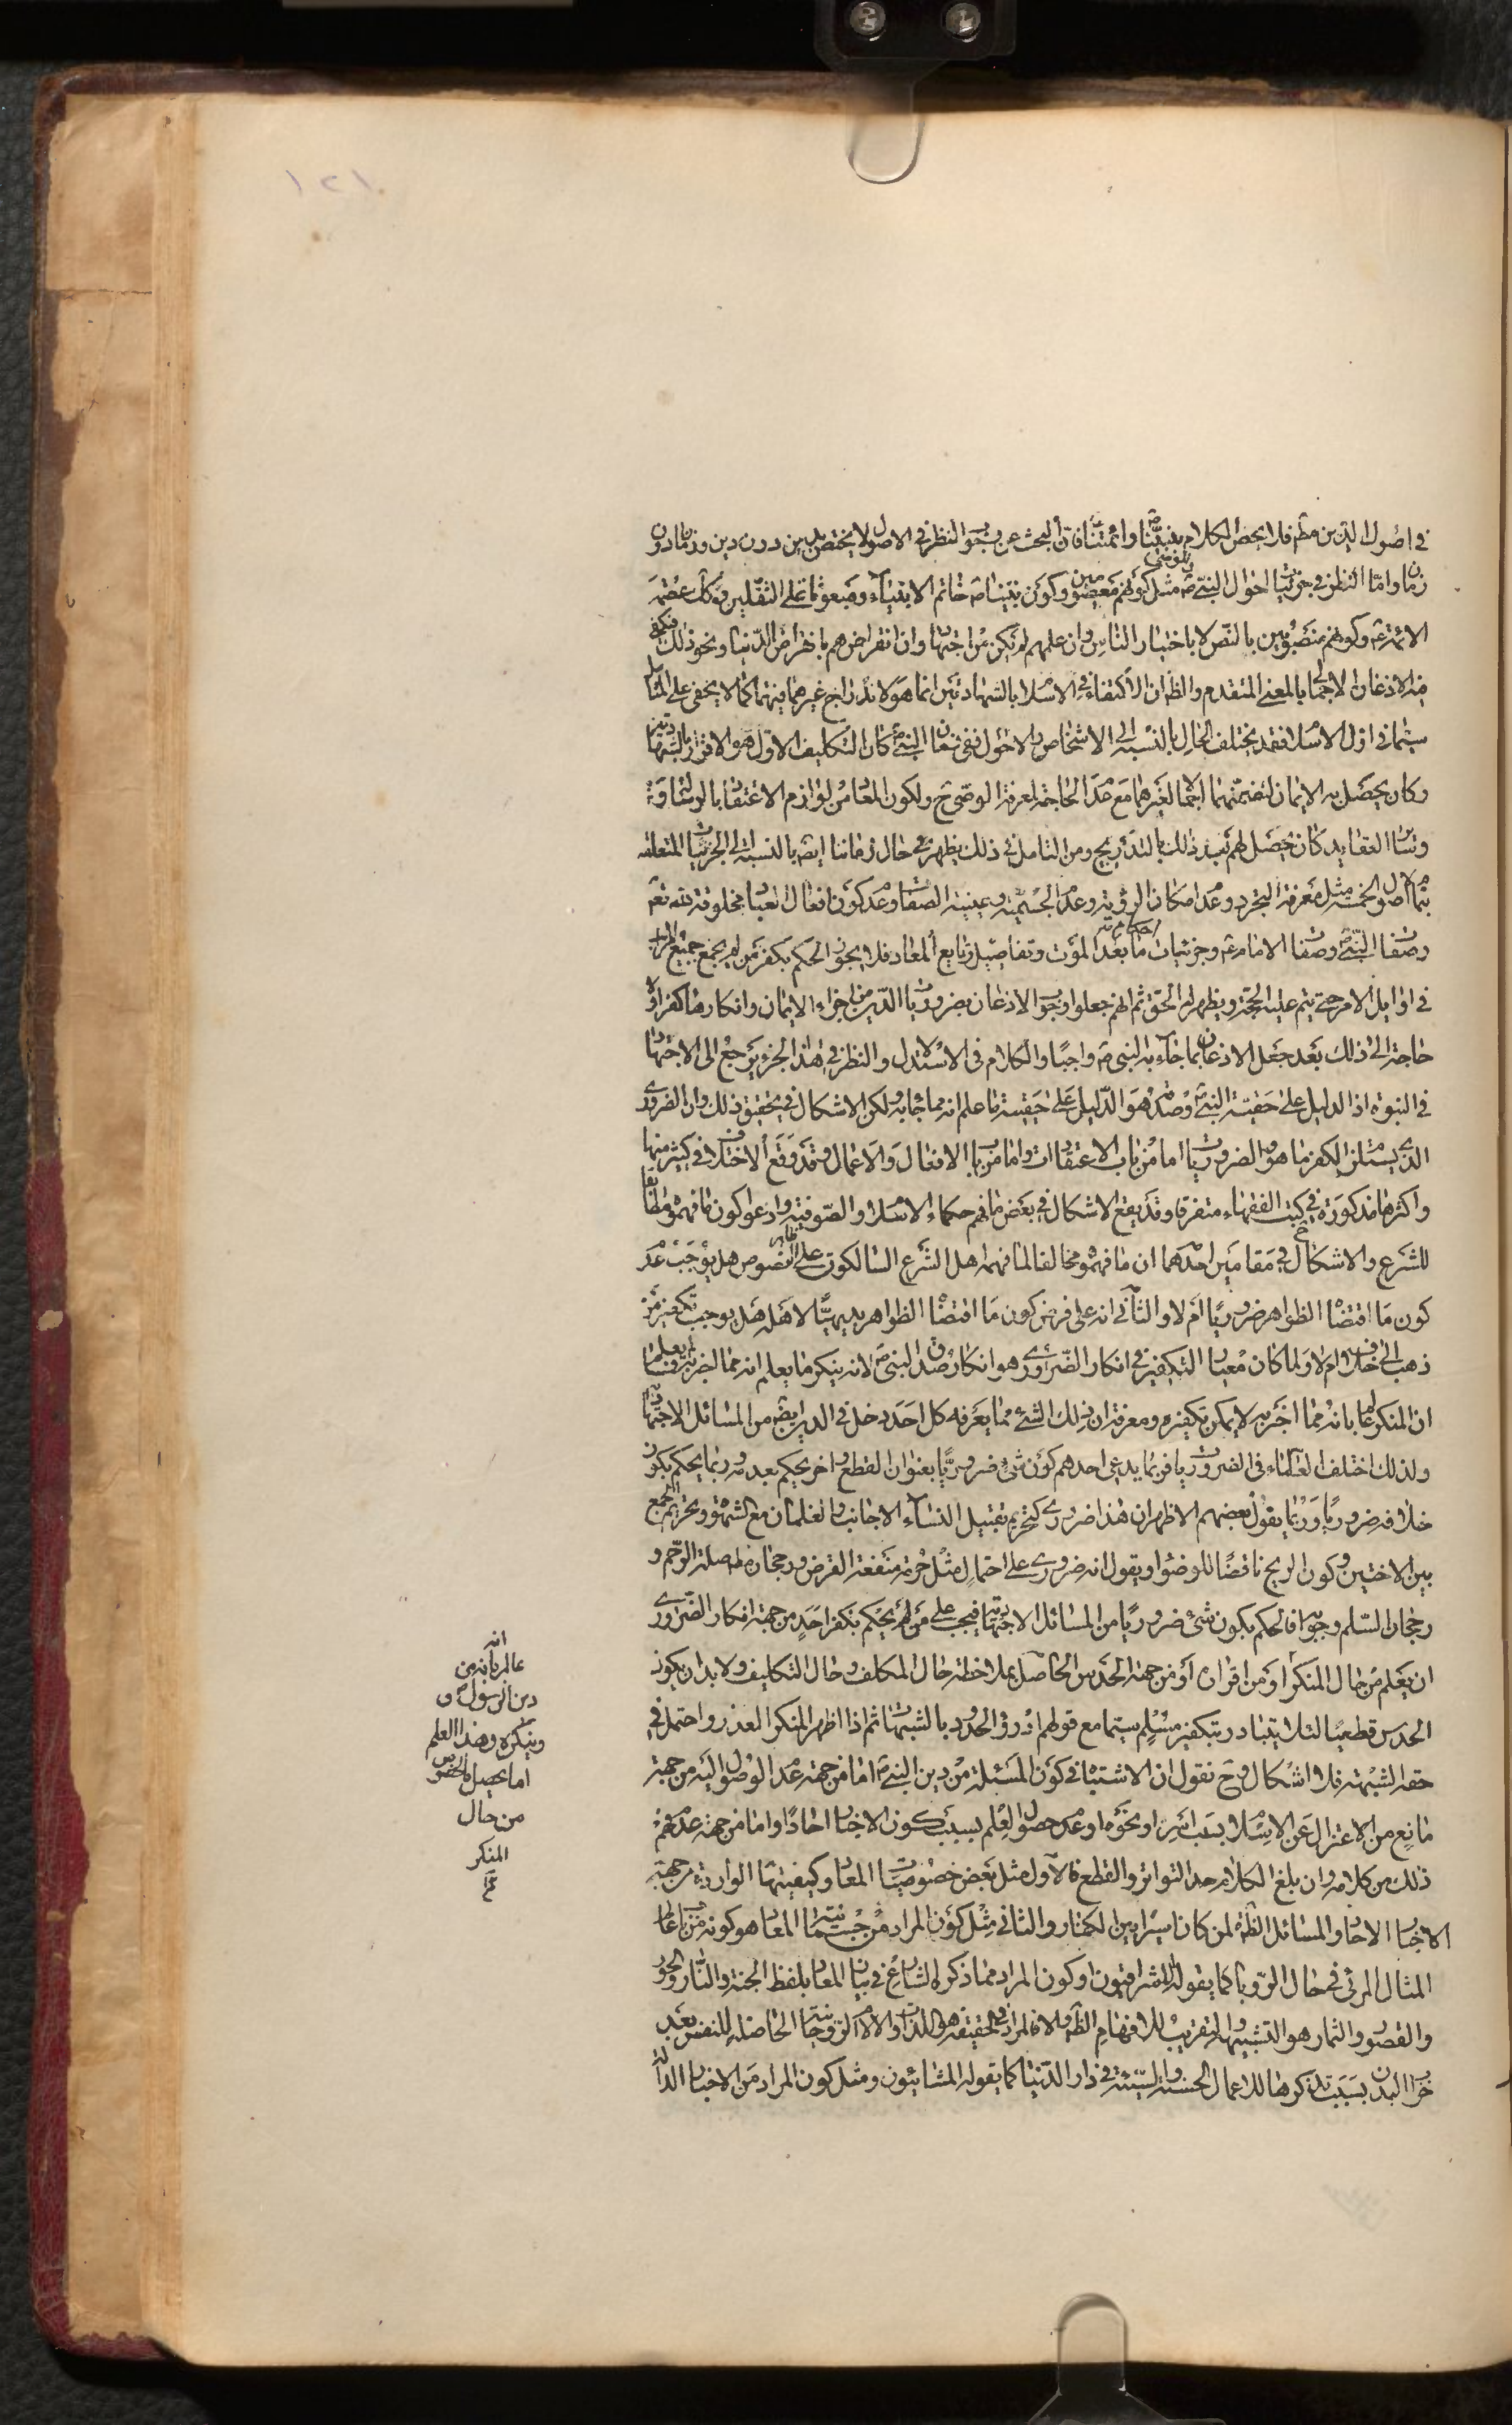 ١٢١
في اصول الدين مط فلا يختص الكلام بنبينا ص وائمتنا فان البحث عن وجوب النظر في الاصول لا يختص بدين دون دين وزمان دون
زمان واما النظر في جزئيات احوال النبي ص مثل كونهم معصومين وكون نبينا ص خاتم الانبياء ومبعوثا على الثقلين وكك عصمة
الائمة ع وكونهم منصوبين بالنص لا باختيار الناس وان علمهم لم يكن عن اجتهاد وان انقراضهم بانقراض الدنيا ونحو ذلك فيكفي
فيه الاذعان الاجمالي بالمعنى المتقدم والظ ان الاكتفاء في الاسلام بالشهادتين انما هو لاندراج غيرهما فيهما كما لا يخفى على المتامل
سيما في اول الاسلام فقد يختلف الحال بالنسبة الى الاشخاص والاحوال ففي زمان النبي ص كان التكليف الاول هو الاقرار بالشهادتين
وكان يحصل به الايمان لتضمنهما اجمالا لغيرهما مع عدم الحاجة لمعرفة الوصي ح ولكون المعاد من لوازم الاعتقاد بالرسالة
وساير العقايد كان يحصل لهم بعد ذلك بالتدريج ومن التامل في ذلك يظهر في حال زماننا ايض بالنسبة الى الجزئيات المتعلقة
بتمام الاصول الخمسة مثل معرفة التجرد وعدم امكان الرؤية وعدم الجسمية وعينية الصفات وعدم كون افعال العباد مخلوقة لله تع
وصفات النبي ص وصفات الامام ع وجزئيات احكام ما بعد الموت وتفاصيل وقايع المعاد فلا يجوز الحكم بكفر من لم يجمع جميع المراتب
في اوايل الامر حتى يتم عليه الحجة ويظهر له الحق ثم انهم جعلوا وجوب الاذعان بضروريات الدين من اجزاء الايمان وانكارها كفرا ولا
حاجة الى ذلك بعد جعل الاذعان بما جاء به النبي ص واجبا والكلام في الاستدلال والنظر في هذا الجزء يرجع الى الاجتهاد
في النبوة اذ الدليل على حقية النبي ص وصدقه هو الدليل على حقيته ما علم انه مما جاء به ولكن الاشكال في تحقيق ذلك وان الضروري
الذي يستلزم الكفر ما هو والضروريات اما من باب الاعتقادات واما من باب الافعال والاعمال وقد وقع الاختلاف في كثير منها
واكثرها مذكورة في كتب الفقهاء متفرقا وقد يقع الاشكال في بعض ما فهم حكماء الاسلام والصوفية وادعوا كون ما فهموه مطابقا
للشرع والاشكال ح في مقامين احدهما ان ما فهموه مخالفا لما فهمه اهل الشرع السالكون على ظاهر النصوص هل يوجب عدم
كون ما اقتضاه الظواهر ضروريا ام لا والثاني انه على فرض كون ما اقتضاه الظواهر بديهيا لاهله هل يوجب تكفير من
ذهب الى خلافه ام لا ولما كان معيار التكفير في انكار الضروري هو انكار صدق النبي ص لانه ينكر ما يعلم انه مما اخبر به فما لم يعلم
ان المنكر عالم بانه مما اخبر به لا يمكن تكفيره ومعرفة ان ذلك الشئ مما يعرفه كل احد دخل في الدين ايض من المسائل الاجتهادية
ولذلك اختلف العلماء في الضروريات فربما يدعي احدهم كون شئ ضروريا بعنوان القطع واخر يحكم بعدمه وربما يحكم بكون
خلافه ضروريا وربما يقول بعضهم الاظهر ان هذا ضروري كتحريم تقبيل النساء الاجانب والغلمان مع الشهوة وتحريم الجمع
بين الاختين وكون الريح ناقضا للوضوء او يقول انه ضروري على احتمال مثل حرمة منفعة القرض ورجحان صلة الرحم و
رجحان السلم وجوابه فالحكم بكون شئ ضروريا من المسائل الاجتهادية فيجب على من لم يحكم بكفر احد من جهة انكار الضروري
ان يعلم من حال المنكر او من اقراره او من جهة الحدس الحاصل بملاحظة حال المكلف وحال التكاليف ولا بد ان يكون
الحدس قطعيا لئلا يتبادر بتكفير مسلم سيما مع قولهم ادرؤا الحدود بالشبهات ثم اذا اظهر المنكر العذر واحتمل في
حقه الشبهة فلا اشكال وح نقول ان الاشتباه في كون المسئلة من دين النبي ص اما من جهة عدم الوصول اليه من جهة
مانع من الاعتزال عن الاسلام بسبب اسر او نحوه او عدم حصول العلم بسبب كون الاخبار احادا واما من جهة عدم فهم
ذلك من كلامه وان بلغ الكلام حد التواتر والقطع فالاول مثل بعض خصوصيات المعاد وكيفيتها الواردة من جهة
الاخبار الاحاد والمسائل الظ لمن كان اسيرا بين الكفار والثاني مثل كون المراد من جسمانية المعاد هو كونه من باب عالم
المثال المرئي في حال الرؤيا كما يقوله الاشراقيون او كون المراد مما ذكره الشارع في بيان المعاد بلفظ الجنة والنار والحور
والقصور والثمار هو التشبيه والتقريب للافهام الظ والا فالمراد في الحقيقة هو اللذات والالام الروحانية الحاصلة للنفس بعد
خراب البدن بسبب تذكرها للاعمال الحسنة والسيئة في دار الدنيا كما يقوله المشائيون ومثل كون المراد من الاخبار الدالة
انه
عالم بانه من
دين الرسول ص و
وينكره وهذا العلم
اما يحصل بالخصوص
من حال
المنكر